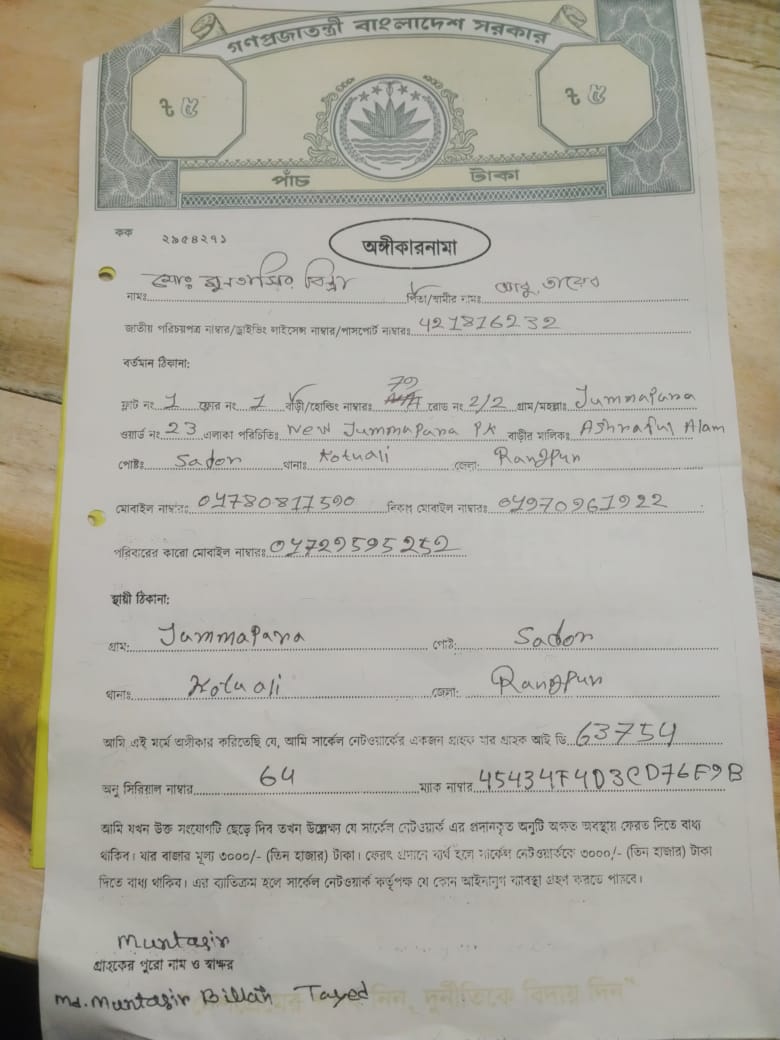 গণপ্রজাতন্ত্রী বাংলাদেশ সরকার
৳ ৫ ৳ ৫
পাঁচ টাকা
কক ২৯৫৪২৭১
অঙ্গীকারনামা
নামঃ মোঃ মুনতাসির বিল্লা পিতা/স্বামীর নামঃ আবু তায়েব
জাতীয় পরিচয়পত্র নাম্বার/ড্রাইভিং লাইসেন্স নাম্বার/পাসপোর্ট নাম্বারঃ 421816232
বর্তমান ঠিকানা:
ফ্লাট নং 1 ফ্লোর নং 1 বাড়ী/হোল্ডিং নাম্বারঃ 79 রোড নং 2/2 গ্রাম/মহল্লাঃ Jummapara
ওয়ার্ড নং 23 এলাকা পরিচিতিঃ New Jummapara PK বাড়ীর মালিকঃ Ashraful Alam
পোষ্টঃ Sador থানাঃ Kotuali জেলা: Rangpur
মোবাইল নাম্বারঃ 01780811590 বিকাশ মোবাইল নাম্বারঃ 01970961922
পরিবারের কারো মোবাইল নাম্বারঃ 01729595252
স্থায়ী ঠিকানা:
গ্রাম: Jummapara পোষ্ট: Sador
থানাঃ Kotuali জেলা: Rangpur
আমি এই মর্মে অঙ্গীকার করিতেছি যে, আমি সার্কেল নেটওয়ার্কের একজন গ্রাহক যার গ্রাহক আই ডি 63754
অনু সিরিয়াল নাম্বার 64 ম্যাক নাম্বার 45434F4D3CD76F9B
আমি যখন উক্ত সংযোগটি ছেড়ে দিব তখন উল্লেক্ষ্য যে সার্কেল নেটওয়ার্ক এর প্রদানকৃত অনুটি অক্ষত অবস্থায় ফেরত দিতে বাধ্য
থাকিব। যার বাজার মূল্য ৩০০০/- (তিন হাজার) টাকা। ফেরৎ প্রদানে ব্যর্থ হলে সার্কেল নেটওয়ার্ককে ৩০০০/- (তিন হাজার) টাকা
দিতে বাধ্য থাকিব। এর ব্যতিক্রম হলে সার্কেল নেটওয়ার্ক কর্তৃপক্ষ যে কোন আইনানুগ ব্যবস্থা গ্রহণ করতে পারবে।
Muntasir
গ্রাহকের পুরো নাম ও স্বাক্ষর
Md. Muntasir Billah Tayed
নিন, দুর্নীতিকে বিদায় দিন"